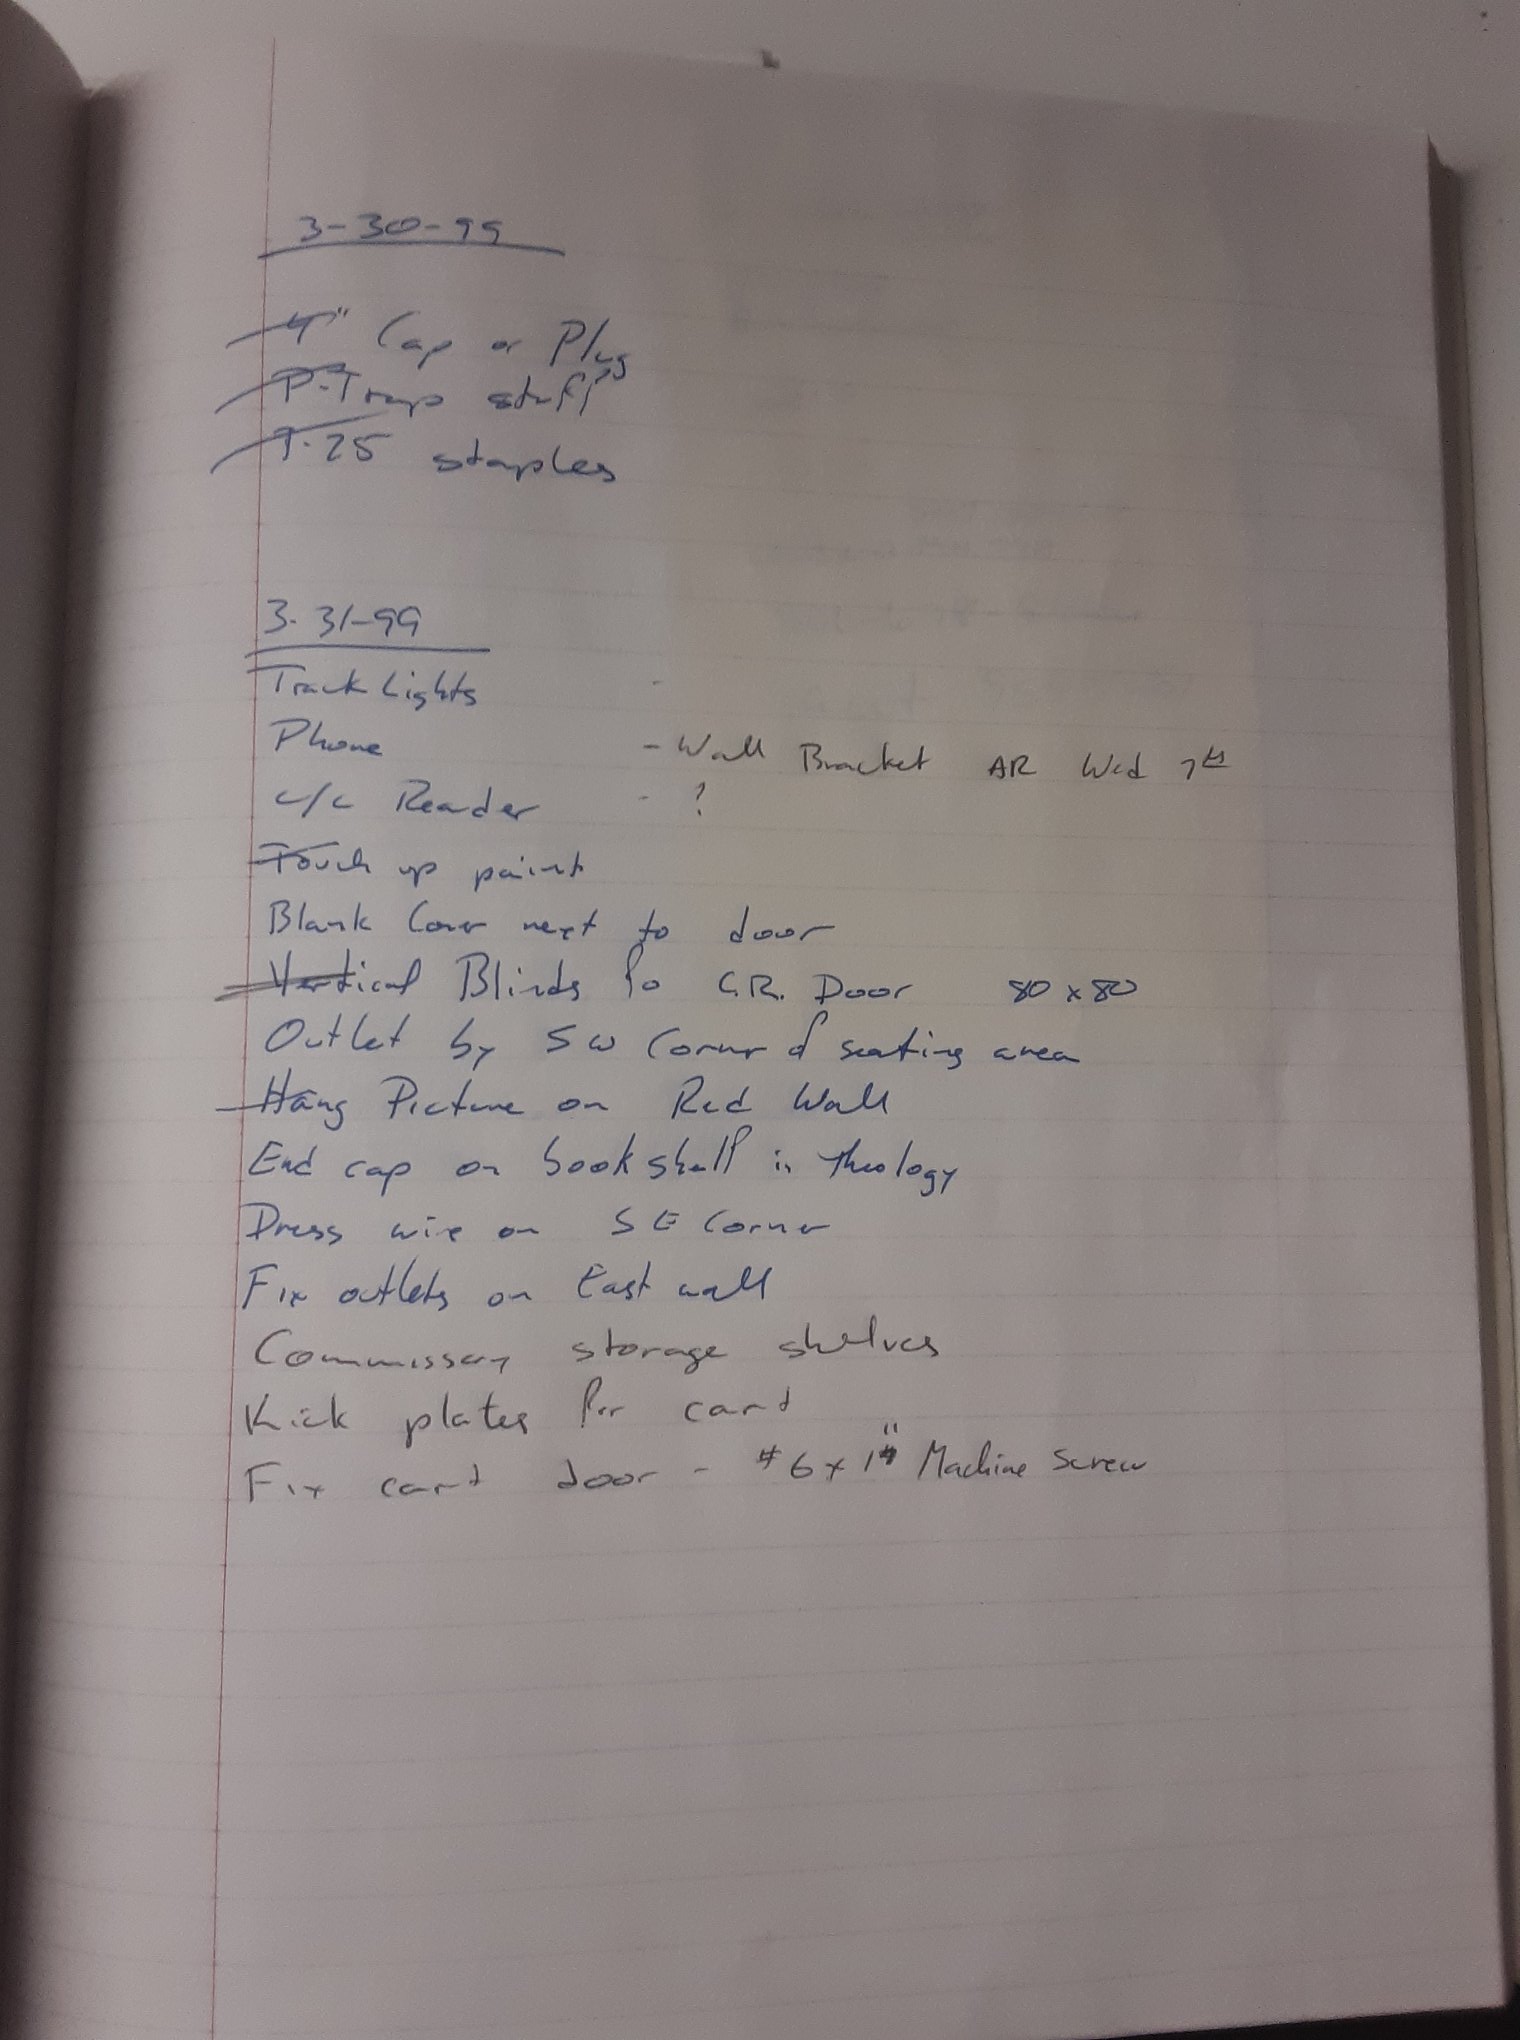 3-30-99
4" Cap or Plug
P-Trap stuff
T-25 staples
3-31-99
Track Lights -
Phone - Wall Bracket AR Wed 7th
c/c Reader - ?
Touch up paint
Blank Cover next to door
Vertical Blinds fo C.R. Door 80 x 80
Outlet by SW Corner of seating area
Hang Picture on Red Wall
End cap on bookshelf in theology
Dress wire on SE Corner
Fix outlets on East wall
Commissary storage shelves
Kick plates for cart
Fix cart door - #6 x 1" Machine Screw